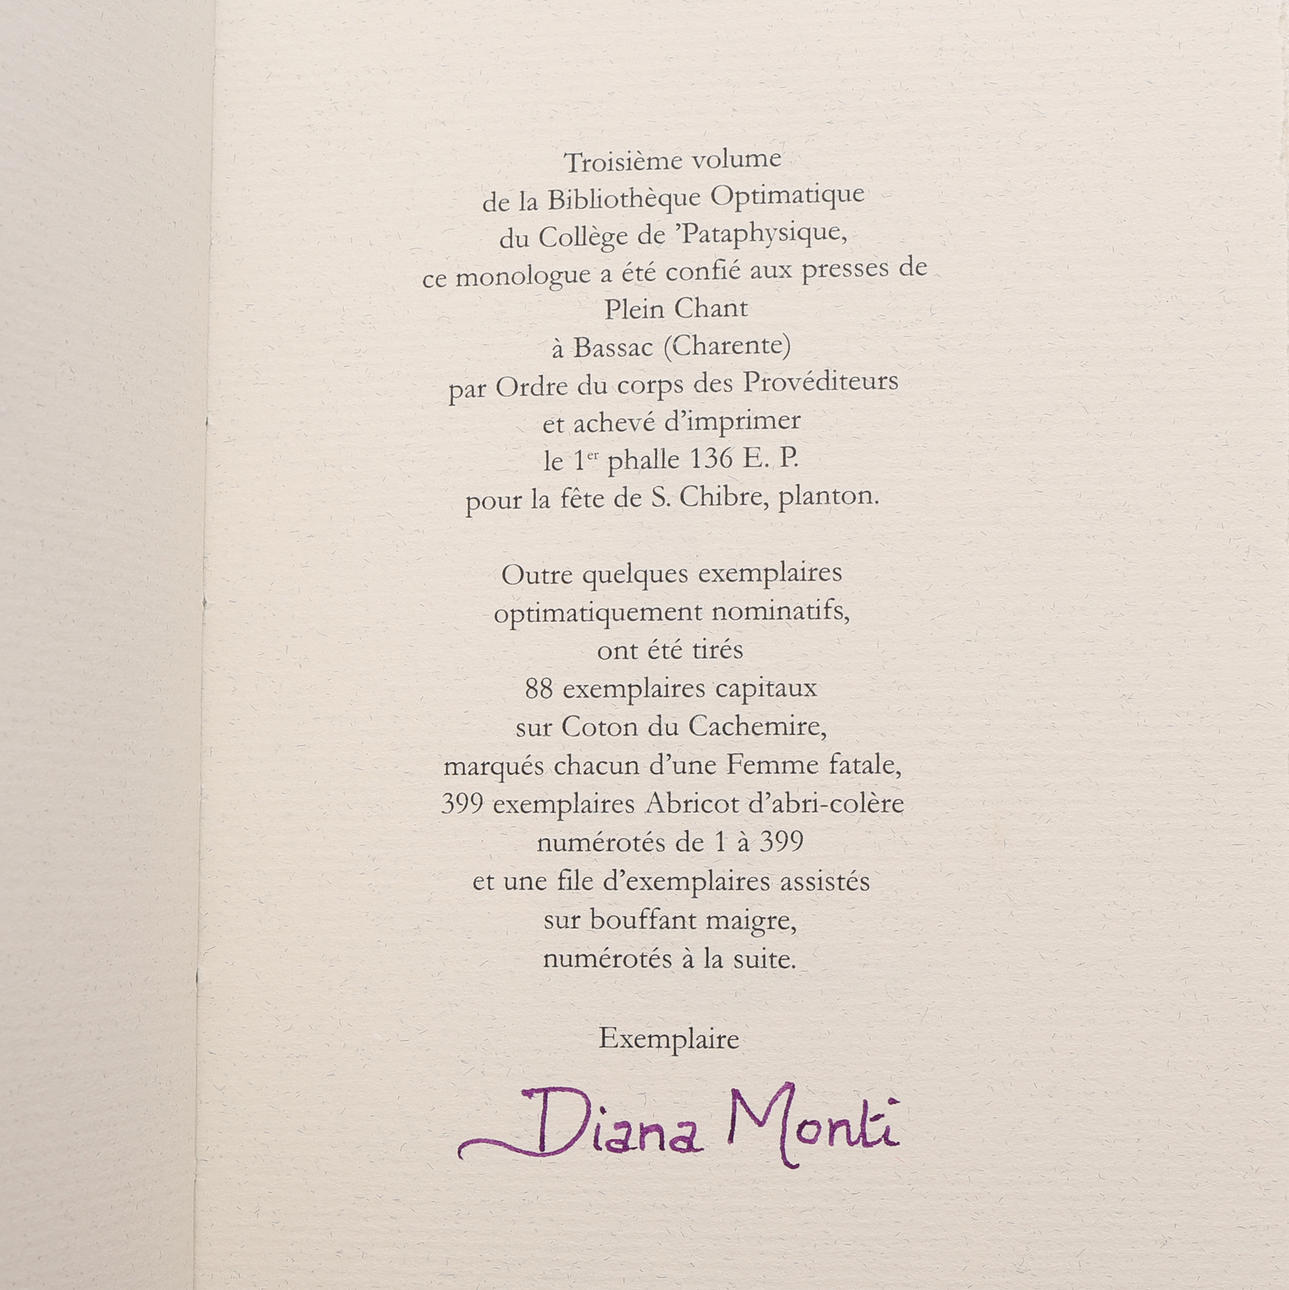 Troisième volume
de la Bibliothèque Optimatique
du Collège de ’Pataphysique,
ce monologue a été confié aux presses de
Plein Chant
à Bassac (Charente)
par Ordre du corps des Provéditeurs
et achevé d’imprimer
le 1er phalle 136 E. P.
pour la fête de S. Chibre, planton.
Outre quelques exemplaires
optimatiquement nominatifs,
ont été tirés
88 exemplaires capitaux
sur Coton du Cachemire,
marqués chacun d’une Femme fatale,
399 exemplaires Abricot d’abri-colère
numérotés de 1 à 399
et une file d’exemplaires assistés
sur bouffant maigre,
numérotés à la suite.
Exemplaire
Diana Monti